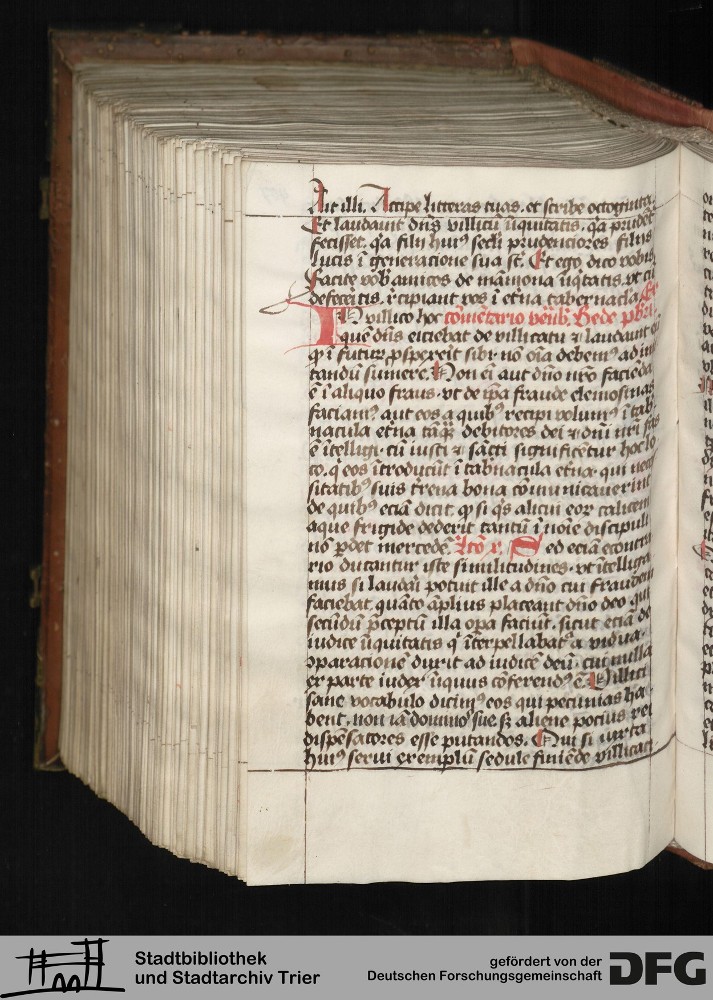 Ait illi. Accipe litteras tuas. et scribe octoginta.
Et laudauit dn̄s villicū iīquitatis. q̄a prudēt͛
fecisset. q̄a filij huiꝰ secl̄i prudenciores filijs
lucis ī generacione sua st̄. Et ego dico vobis
facite vob̄ amicos de māmona iīq̄tatis. vt cū
defecēitis. r̄cipiant vos ī et̄na tabernac̄la. Ex
In villico hoc cōmētario ven̄b. Bede pb̄ri.
quē dn̄s eiciebat de villicatu ⁊ laudauit
ꝙ ī futur̄ ꝓspexeīt sibi. nō oīa debemꝰ ad imi
tandū sumere. Non ei aut dn̄o nr̄o faciēda
ē ī aliquo fraus. vt de ip̄a fraude elemosinas
faciamꝰ aut eos a quibꝰ recipi volumꝰ ī tab̄
nacula et̄na tāꝙ̄ debitores dei ⁊ dn̄i nr̄i fas
ē ītelligi. cū iusti ⁊ sācti significētur hoc lo
co. q̄ eos ītroducūt ī tab̄nacula et̄na. qui nec̄
sitatibꝰ suis t̄rena bona cōmunicauerint
de quibꝰ eciā dicit. ꝙ si q̄s alicui eoꝝ calicem
aque frigide dederit tantū ī noīe discipuli
nō ꝑdet mercedē. Sed eciā econtra
rio dicantur iste similitudines. vt ītelliga
mus si laudāi potuit ille a dn̄o cui fraudem
faciebat. quāto āplius placeant dn̄o deo. qui
secūdū p̄ceptū illa oꝑa faciūt. sicut eciā de
iudice iīquitatis q̄ īterpellabat͛ a vidua.
oparacionē duxit ad iudicē deū. cui nulla
ex parte iudex iīquus cōferendꝰ ē. Villici
sane vocabulo dicimꝰ eos qui pecunias ha
bent. non iā dominoꝰ sue sꝫ aliene pocius rei
dispēsatores esse putandos. Qui si iuxta
huiꝰ serui exemplū sedule finiēde villicac
Stadtbibliothek
und Stadtarchiv Trier
gefördert von der
Deutschen Forschungsgemeinschaft
DFG